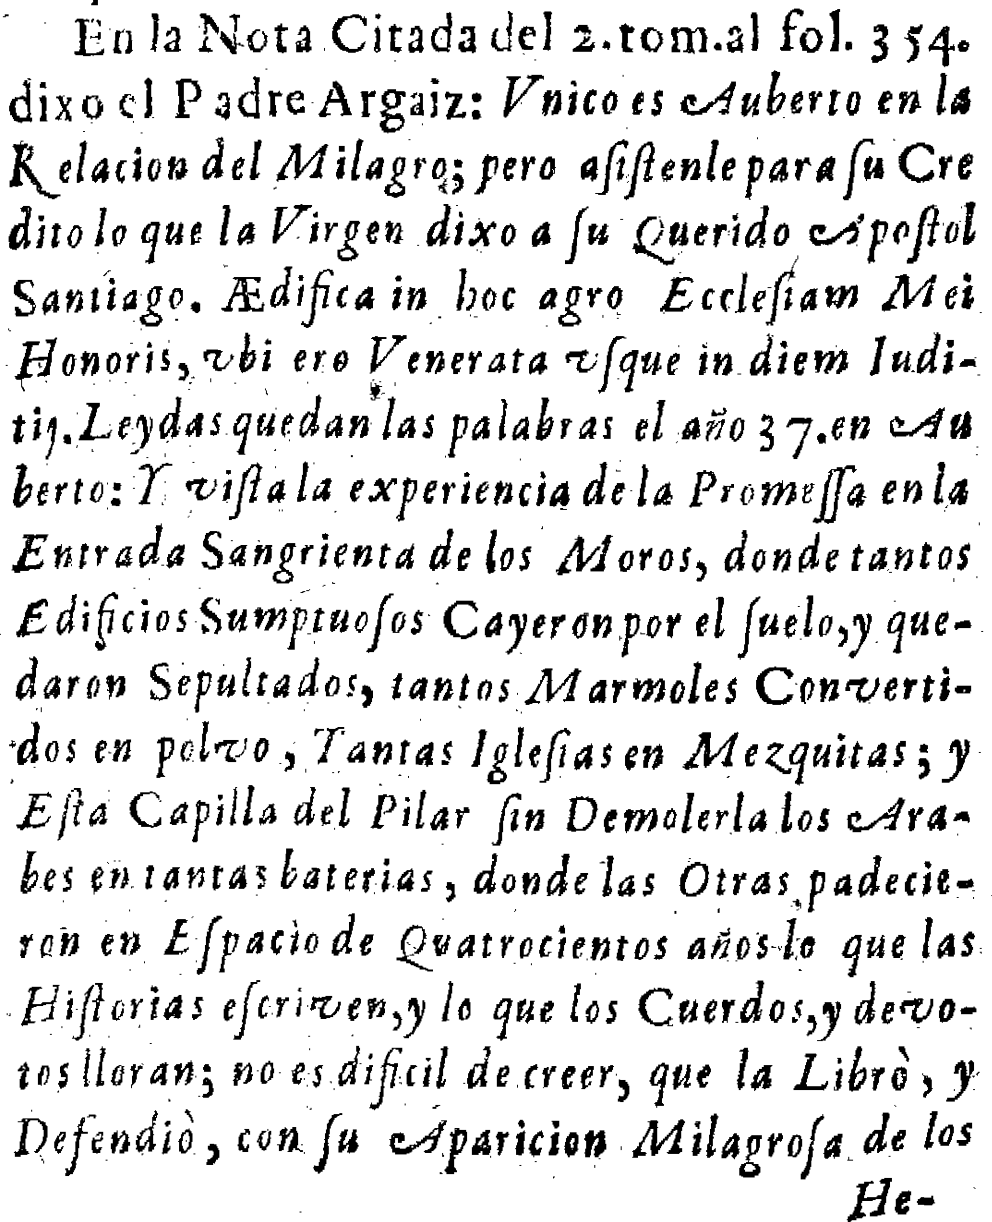 En la Nota Citada del 2. tom. al fol. 354.
dixo el Padre Argaiz: Vnico es Auberto en la
Relacion del Milagro; pero asiſtenle para ſu Cre
dito lo que la Virgen dixo a ſu Querido Apoſtol
Santiago. Ædifica in hoc agro Eccleſiam Mei
Honoris, vbi ero Venerata vſque in diem Iudi-
tij. Leydas quedan las palabras el año 37. en Au
berto: Y viſta la experiencia de la Promeſſa en la
Entrada Sangrienta de los Moros, donde tantos
Edificios Sumptuoſos Cayeron por el ſuelo, y que-
daron Sepultados, tantos Marmoles Converti-
dos en polvo, Tantas Igleſias en Mezquitas; y
Eſta Capilla del Pilar ſin Demolerla los Ara-
bes en tantas baterias, donde las Otras padecie-
ron en Eſpacio de Quatrocientos años lo que las
Hiſtorias eſcriven, y lo que los Cuerdos, y devo-
tos lloran; no es dificil de creer, que la Librò, y
Defendiò, con ſu Aparicion Milagroſa de los
He-